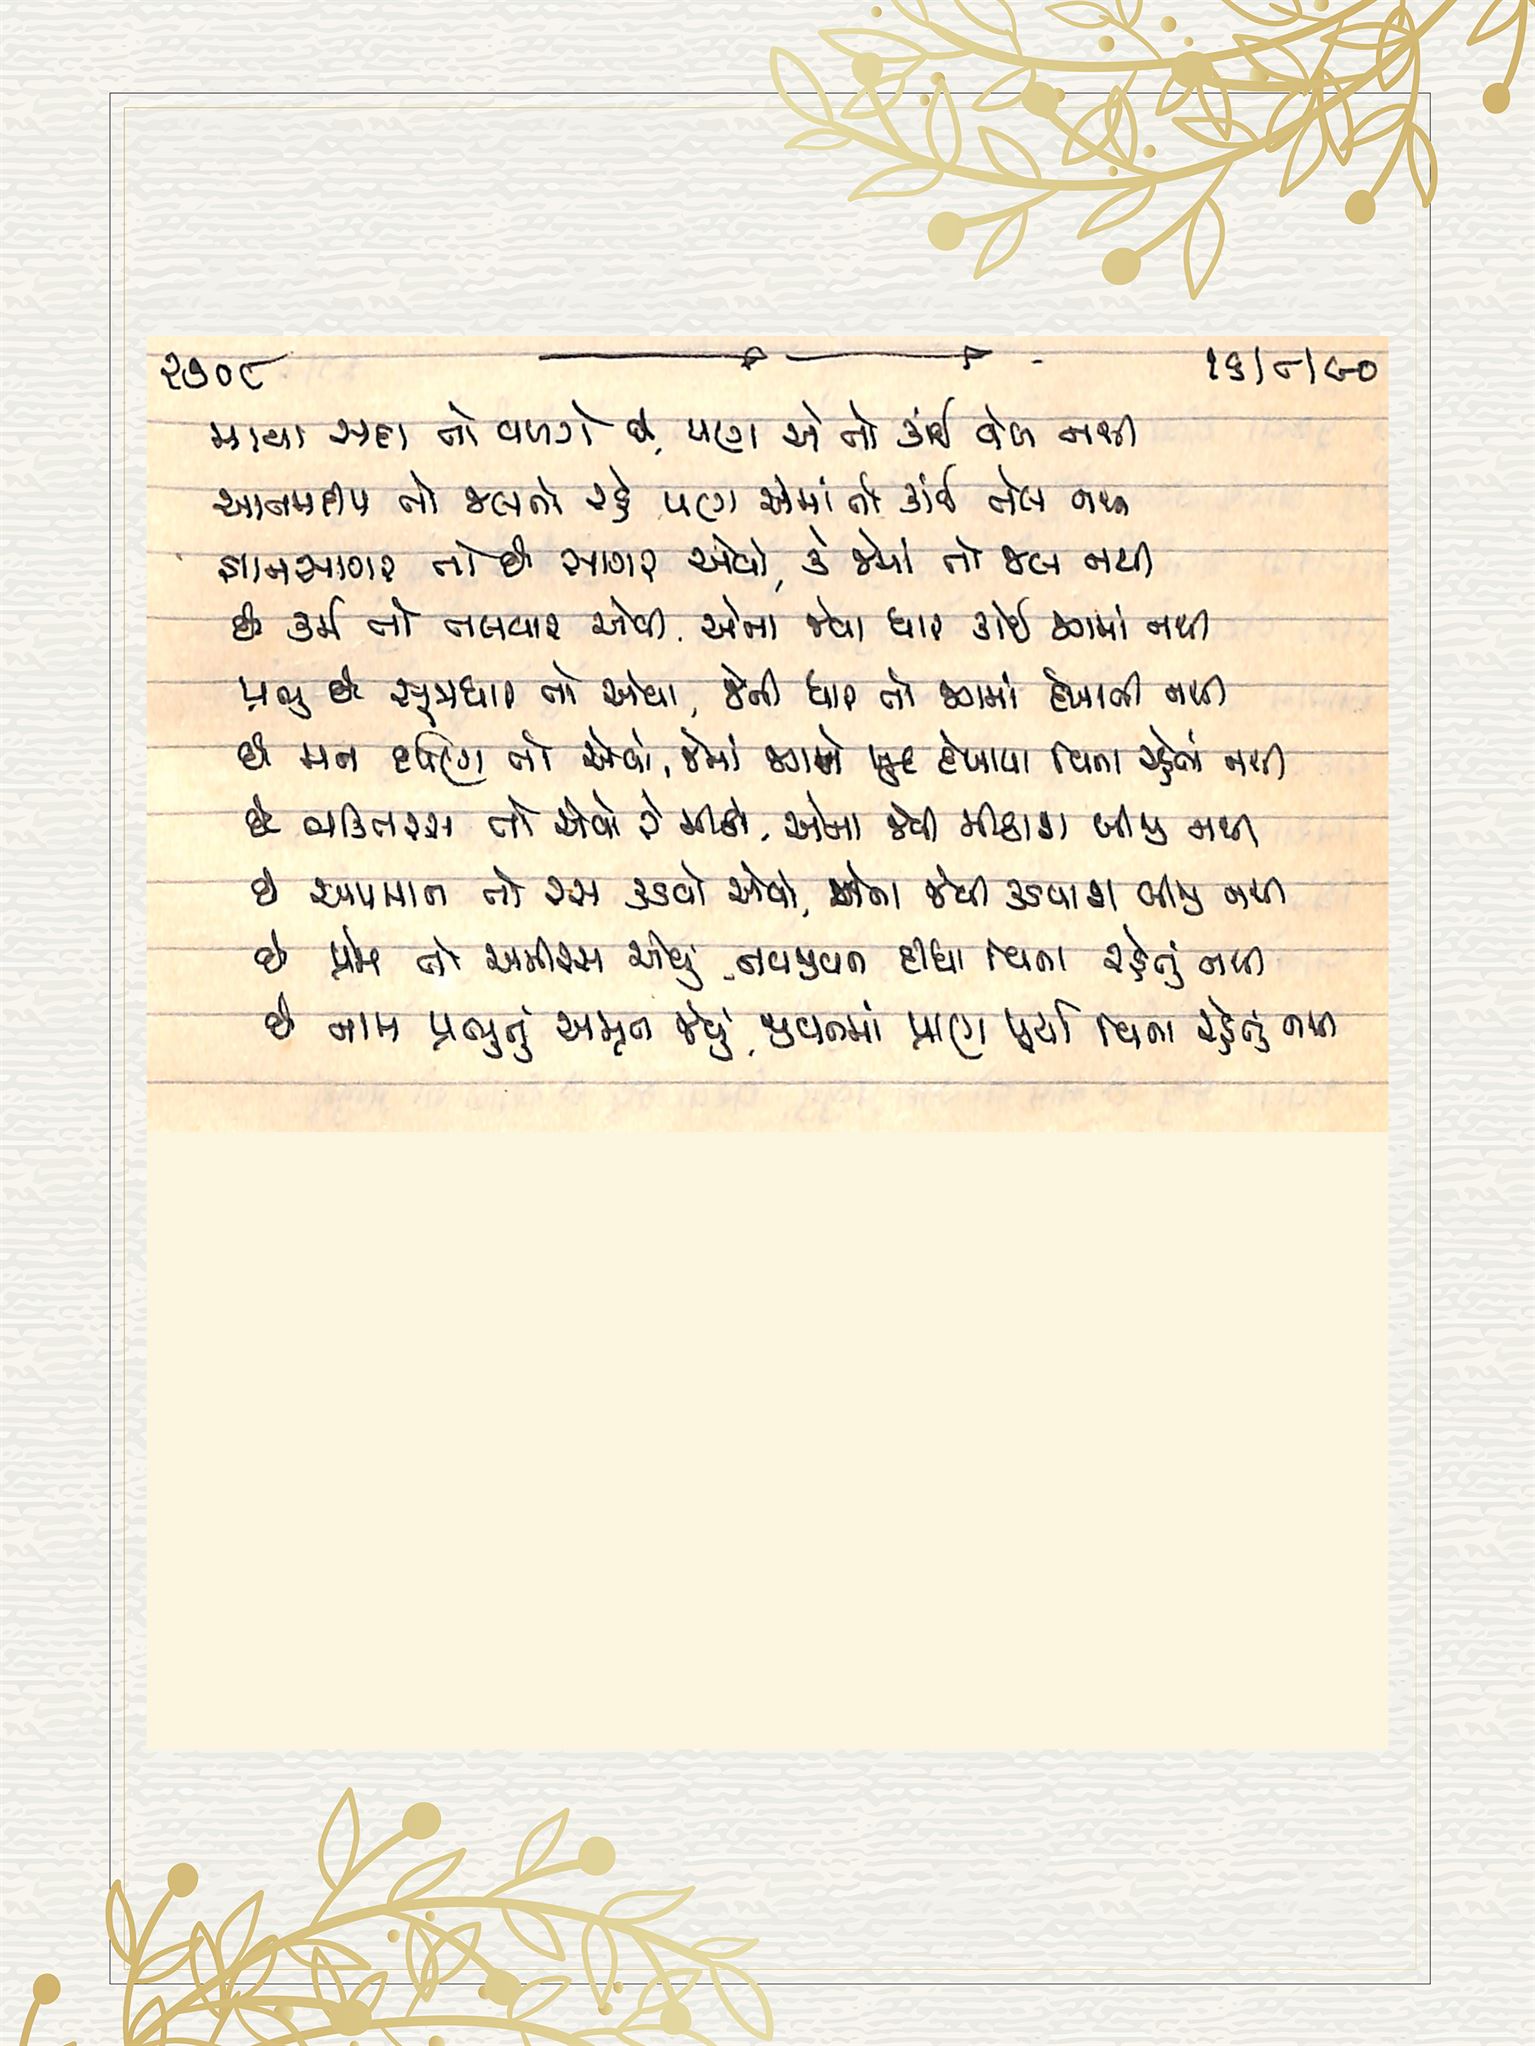 ૨૭૦૮ ૧૬/૮/૯૦
માયા સદા તો વળગે છે, પણ એ તો કાંઈ વેલ નથી
આતમદીપ તો જલતો રહે પણ એમાં તો કાંઈ તેલ નથી
જ્ઞાનસાગર તો છે સાગર એવો, કે જેમાં તો જલ નથી
છે કર્મ તો તલવાર એવી, એના જેવી ધાર કોઈ જગમાં નથી
પ્રભુ છે સૂત્રધાર તો એવા, જેની ધાર તો જગમાં દેખાતી નથી
છે મન દર્પણ તો એવો, જેમાં જગને ખુદ દેખાયા વિના રહેતાં નથી
છે ભક્તિરસ તો એવો રે મીઠો, એના જેવી મીઠાશ બીજી નથી
છે અપમાન તો રસ કડવો એવો, એના જેવી કડવાશ બીજી નથી
છે પ્રેમ તો અમીરસ એવું નવજીવન દીધા વિના રહેતું નથી
છે નામ પ્રભુનું અમૃત જેવું, જીવનમાં પ્રાણ પૂર્યા વિના રહેતું નથી